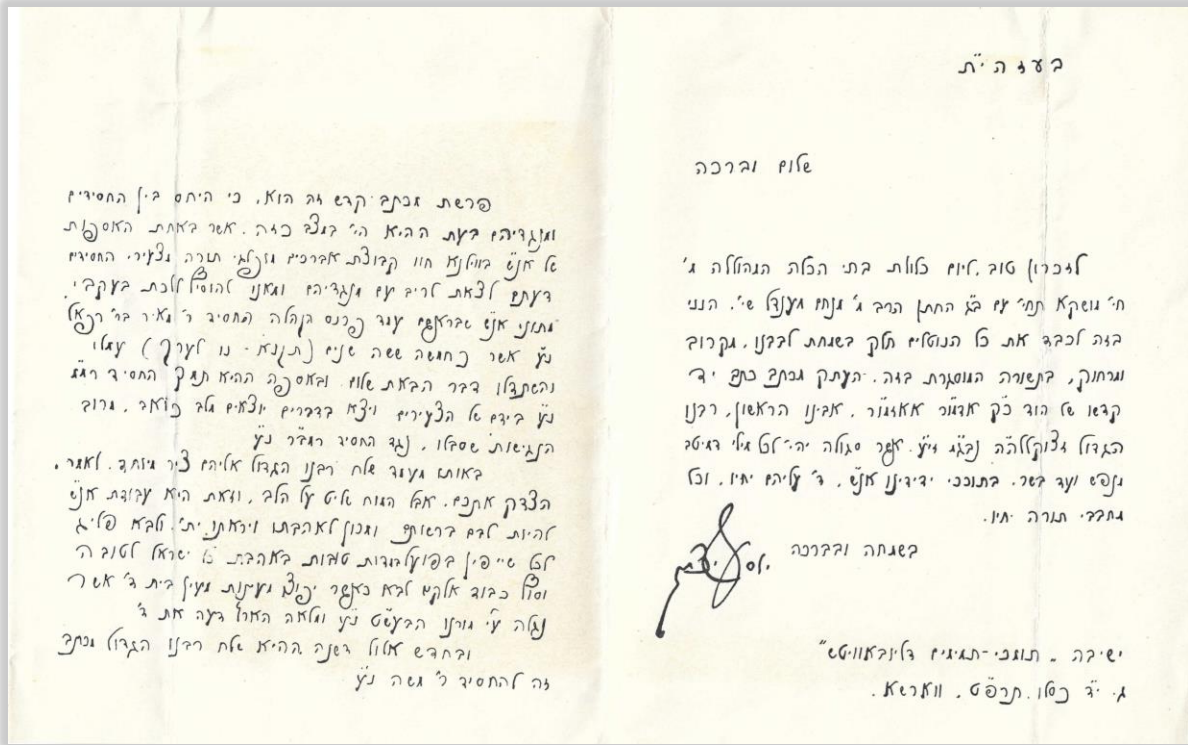 בעזהי״ת
שלום וברכה
לזכרון טוב, ליום כלולת בתי הכלה המהוללה מ׳
חי׳ מושקא תחי׳ עם ב״ג החתן הרב מ׳ מנחם מענדל שי׳, הנני
בזה לכבד את כל הנוטלים חלק בשמחת לבבנו, מקרוב
ומרחוק, בתשורה המוסגרת בזה. העתק מכתב כתב יד
קדשו של הוד כ״ק אדמו״ר אאזמו״ר, אבינו הראשון, רבנו
הגדול זצוקללה״ה נבג״מ זי״ע. אשר סגולה יהי׳ לכל מילי דמיטב
מנפש ועד בשר. בתוככי ידידינו אנ״ש, ד׳ עליהם יחיו, וכל
מחבבי תורה יחיו.
בשמחה ובברכה
ישיבה „תומכי-תמימים דליובאוויטש״
ג. י״ד כסלו. תרפ״ט. ווארשא.
פרשת מכתב קדש זה הוא, כי היחס בין החסידים
ומנגדיהם בעת ההיא הי׳ במצב כזה. אשר באחת האספות
של אנ״ש בווילנא חוו קבוצת אברכים מופלגי תורה מצעירי החסידים
דעתם לצאת לריב עם מנגדיהם ומאנו להוסיף ללכת בעקבי
מתוני אנ״ש שבראשם עמד פרנס הקהלה החסיד ר׳ מאיר בר׳ רפאל
נ״ע אשר כחמשה ששה שנים (תקנא - נו לערך) עמלו
והשתדלו דבר הבאת שלום. ובאספה ההיא תמך החסיד
נ״ע בידם של הצעירים ויצא בדברים יוצאים מלב כואב, מרוב
הנגישות שסבלו, נגד החסיד רמב״ר נ״ע
באותו מעמד שלח רבנו הגדול אליהם ציר מיוחד. לאמר.
הצדק אתכם. אבל המוח שליט על הלב, וזאת היא עבודת אנ״ש
להיות לבם ברשותם ומכון לאהבתו ויראתו ית׳. ולבא
לכל שייפין בפועל במדות טובות באהבת כל ישראל לטוב ה׳
וסוף כבוד אלקים לבא כאשר יפוצו מעינות מעין בית ד׳ אשר
נגלה ע״י מורנו הבעש״ט נ״ע ומלאה הארץ דעה את ד׳
ובחדש אלול דשנה ההיא שלח רבנו הגדול מכתב
זה להחסיד ר׳ משה נ״ע